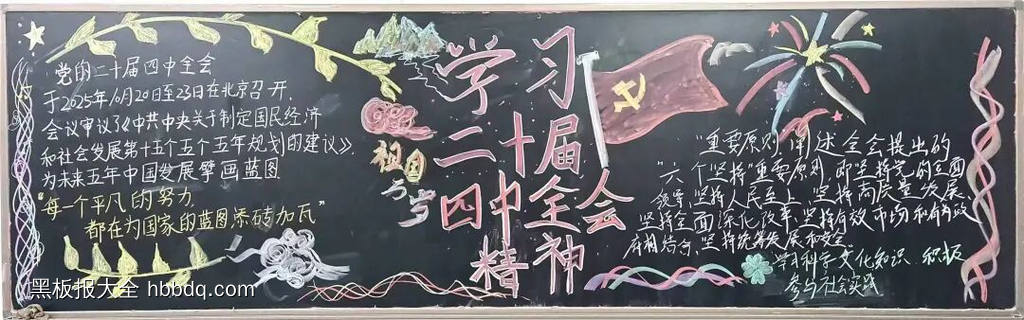 党的二十届四中全会
于2025年10月20日至23日在北京召开,
会议审议了《中共中央关于制定国民经济
和社会发展第十五个五个五年规划的建议》
为未来五年中国发展擘画蓝图
"每一个平凡的努力
都在为国家的蓝图添砖加瓦"
祖国
学习
二十届
四中全会
精神
"重要原则"阐述全会提出的
"六个坚持"重要原则,即坚持党的全面
领导,坚持人民至上,坚持高质量发展
坚持全面深化改革,坚持有效市场和有为政
府相结合,坚持统筹发展和安全"
学习科学文化知识 积极
参与社会实践
黑板报大全 hbbdq.com